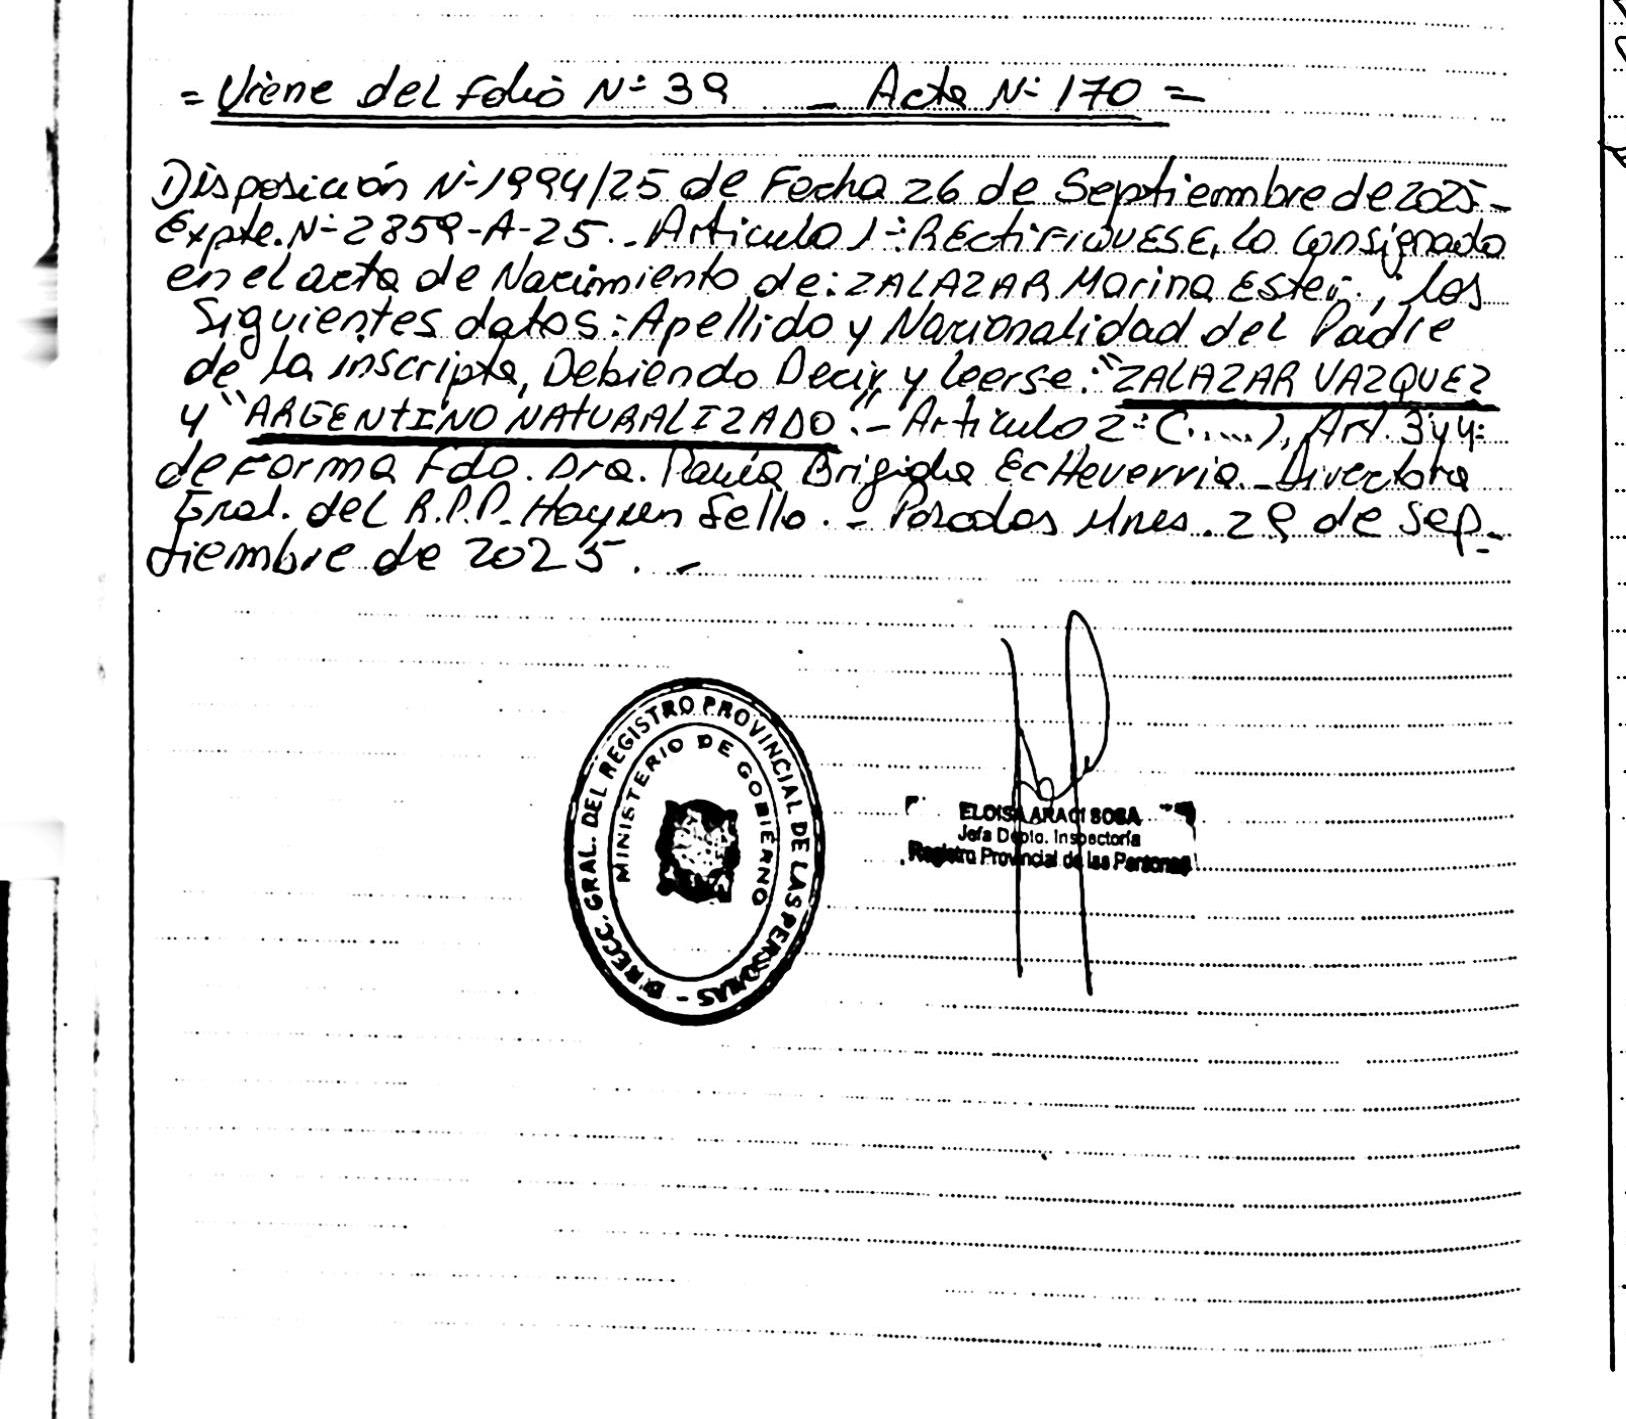 = Viene del Folio Nº 39 - Acta Nº 170 =
Disposición Nº 1994/25 de Fecha 26 de Septiembre de 2025-
Expte. Nº 2859-A-25.- Articulo 1º: RECTIFIQUESE, lo consignado
en el acta de Nacimiento de: ZALAZAR Marina Ester; los
Siguientes datos: Apellido y Nacionalidad del Padre
de la inscripta, Debiendo Decir y leerse: "ZALAZAR VAZQUEZ
y "ARGENTINO NATURALIZADO".- Articulo 2º (.....), Art. 3 y 4º
de Forma Fdo. Dra. Paula Brigida Echeverria - Directora
Gral. del R.P.P. Hay un Sello. - Posadas Mnes. 29 de Sep-
tiembre de 2025. -
DIRECC. GRAL. DEL REGISTRO PROVINCIAL DE LAS PERSONAS -
MINISTERIO DE GOBIERNO
ELOISA ARACI SOSA
Jefa Dpto. Inspectoría
Registro Provincial de las Personas